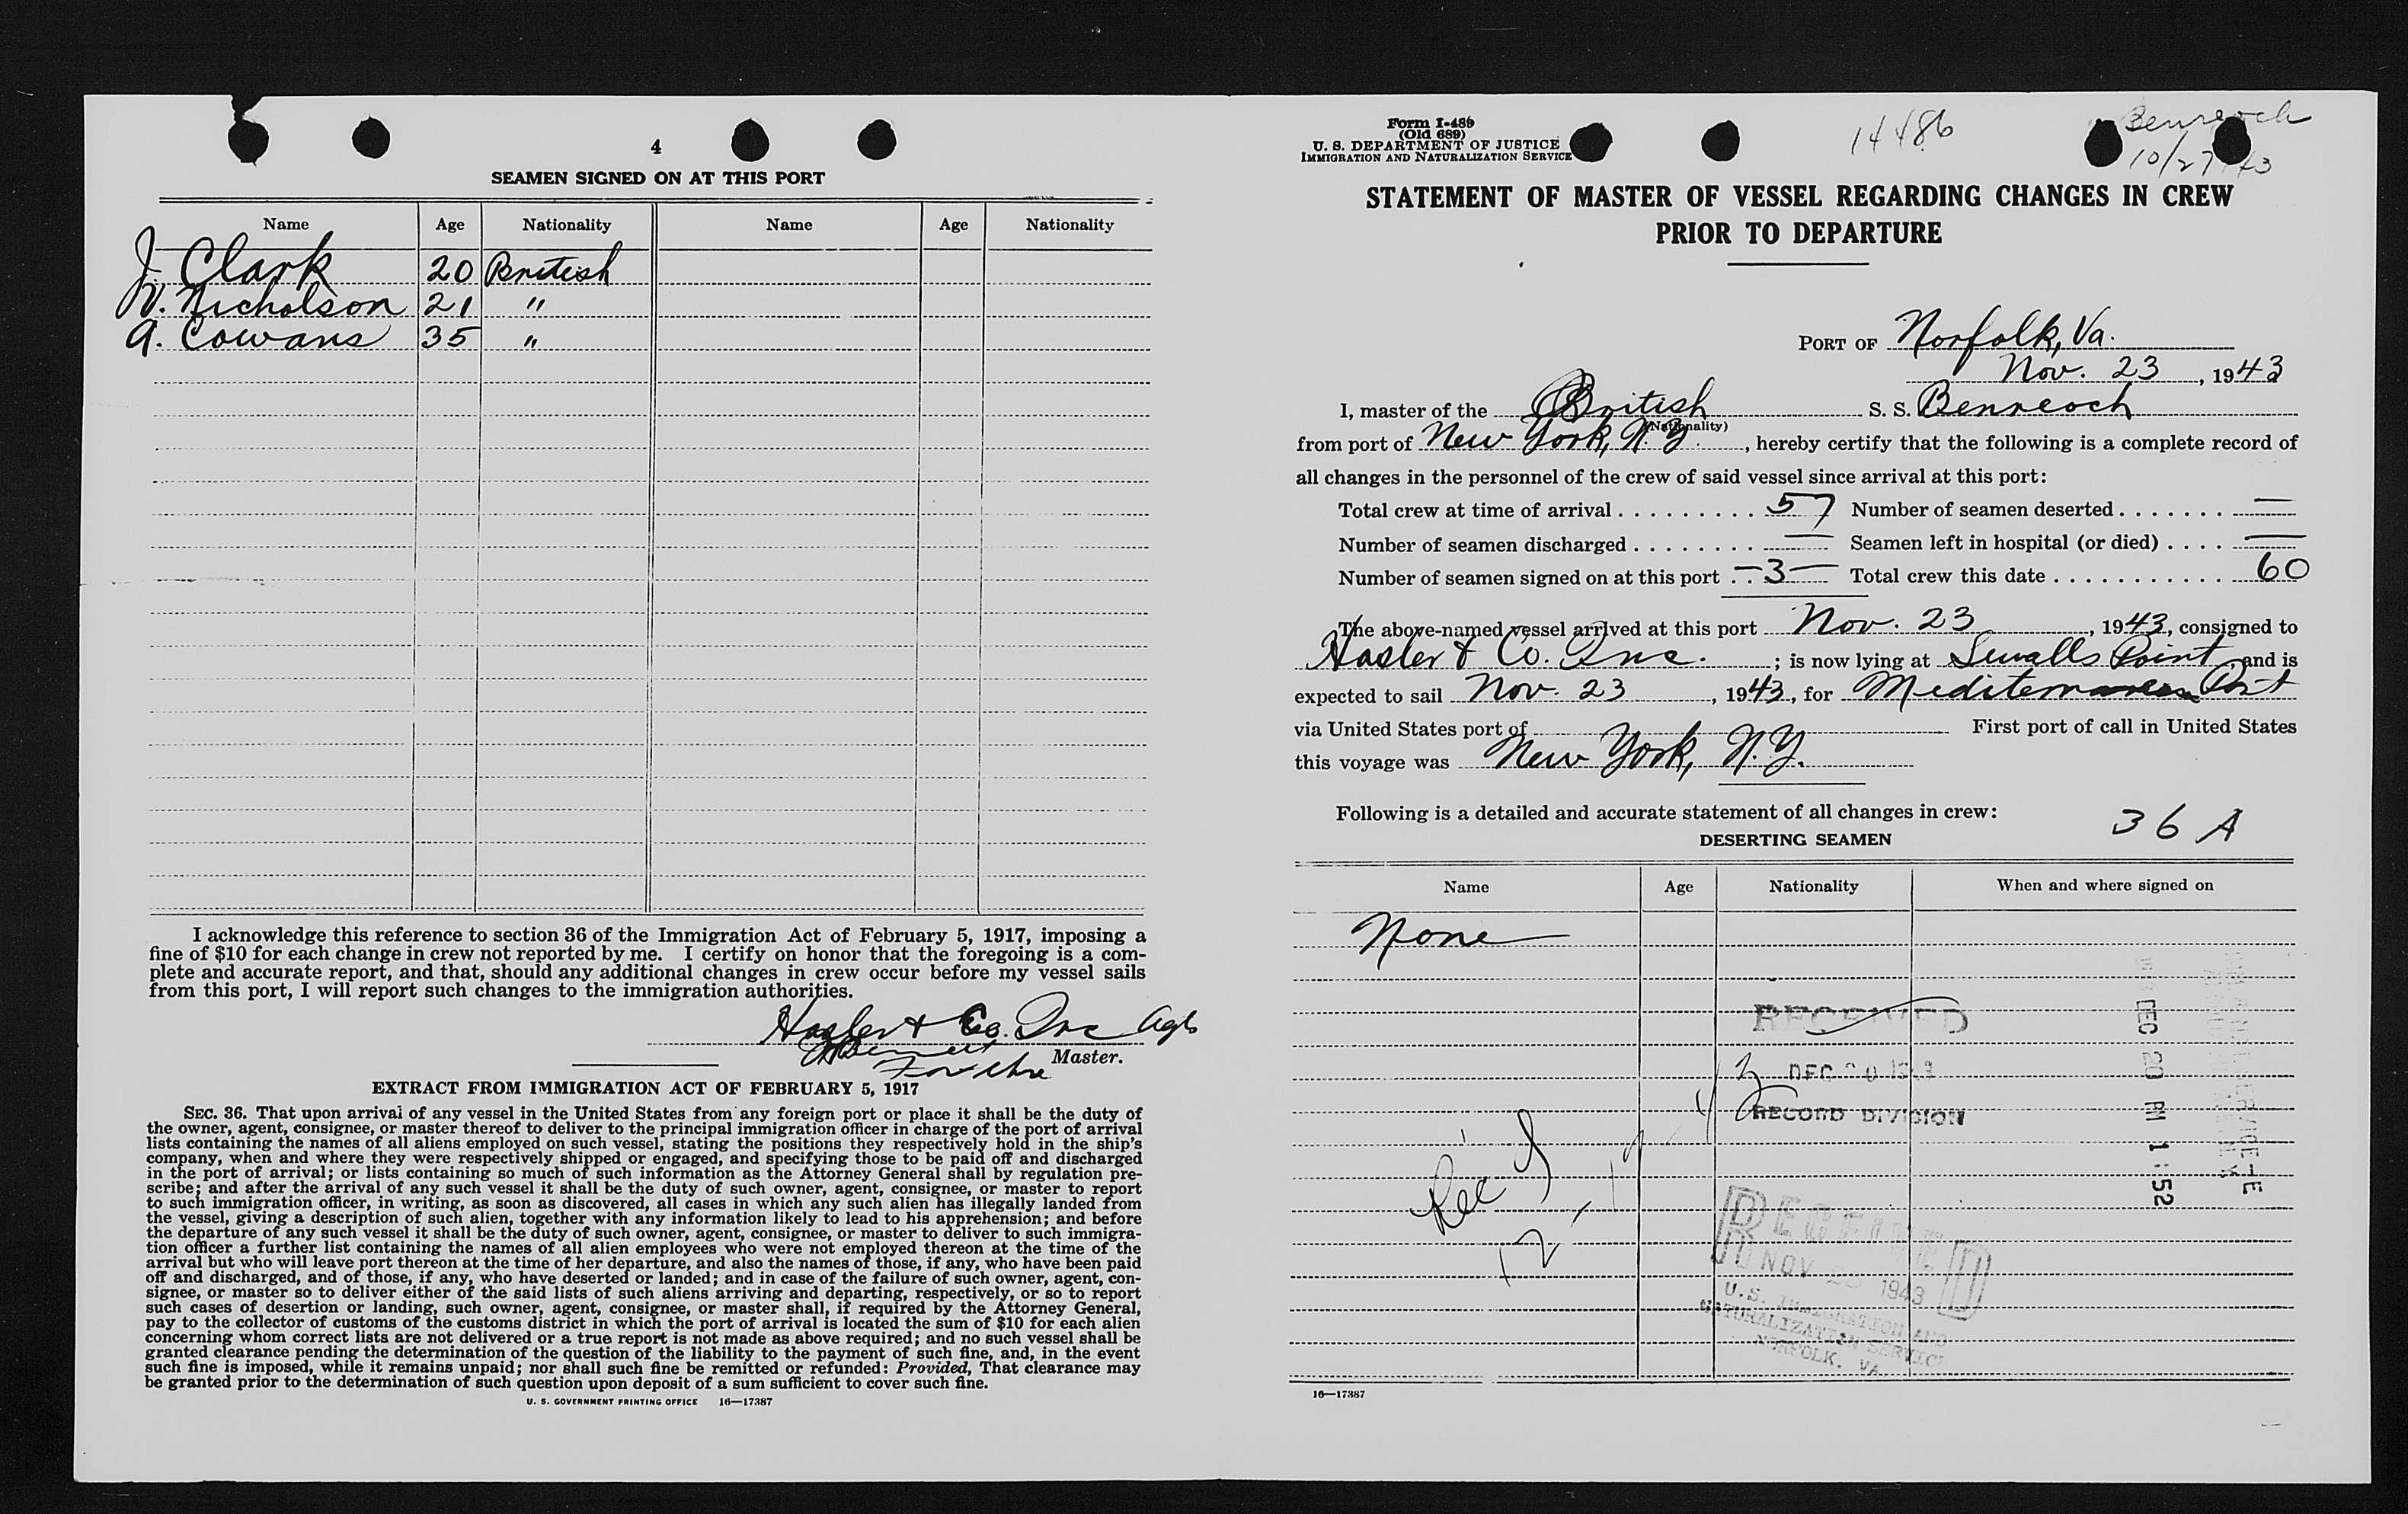 4
SEAMEN SIGNED ON AT THIS PORT
Name Age Nationality Name Age Nationality
J. Clark 20 British
W. Nicholson 21 "
A. Cowans 35 "
I acknowledge this reference to section 36 of the Immigration Act of February 5, 1917, imposing a
fine of $10 for each change in crew not reported by me. I certify on honor that the foregoing is a com-
plete and accurate report, and that, should any additional changes in crew occur before my vessel sails
from this port, I will report such changes to the immigration authorities.
Hasler & Co. Inc Agts
For the Master.
EXTRACT FROM IMMIGRATION ACT OF FEBRUARY 5, 1917
SEC. 36. That upon arrival of any vessel in the United States from any foreign port or place it shall be the duty of
the owner, agent, consignee, or master thereof to deliver to the principal immigration officer in charge of the port of arrival
lists containing the names of all aliens employed on such vessel, stating the positions they respectively hold in the ship's
company, when and where they were respectively shipped or engaged, and specifying those to be paid off and discharged
in the port of arrival; or lists containing so much of such information as the Attorney General shall by regulation pre-
scribe; and after the arrival of any such vessel it shall be the duty of such owner, agent, consignee, or master to report
to such immigration officer, in writing, as soon as discovered, all cases in which any such alien has illegally landed from
the vessel, giving a description of such alien, together with any information likely to lead to his apprehension; and before
the departure of any such vessel it shall be the duty of such owner, agent, consignee, or master to deliver to such immigra-
tion officer a further list containing the names of all alien employees who were not employed thereon at the time of the
arrival but who will leave port thereon at the time of her departure, and also the names of those, if any, who have been paid
off and discharged, and of those, if any, who have deserted or landed; and in case of the failure of such owner, agent, con-
signee, or master so to deliver either of the said lists of such aliens arriving and departing, respectively, or so to report
such cases of desertion or landing, such owner, agent, consignee, or master shall, if required by the Attorney General,
pay to the collector of customs of the customs district in which the port of arrival is located the sum of $10 for each alien
concerning whom correct lists are not delivered or a true report is not made as above required; and no such vessel shall be
granted clearance pending the determination of the question of the liability to the payment of such fine, and, in the event
such fine is imposed, while it remains unpaid; nor shall such fine be remitted or refunded: Provided, That clearance may
be granted prior to the determination of such question upon deposit of a sum sufficient to cover such fine.
U. S. GOVERNMENT PRINTING OFFICE 16—17387
Form I-489
(Old 689)
U. S. DEPARTMENT OF JUSTICE
IMMIGRATION AND NATURALIZATION SERVICE
14486
Benreoch
10/27/43
STATEMENT OF MASTER OF VESSEL REGARDING CHANGES IN CREW
PRIOR TO DEPARTURE
PORT OF Norfolk, Va.
Nov. 23, 1943
I, master of the British S. S. Benreoch
(Nationality)
from port of New York, N.Y., hereby certify that the following is a complete record of
all changes in the personnel of the crew of said vessel since arrival at this port:
Total crew at time of arrival . . . . . . . . . 57 Number of seamen deserted . . . . . . . —
Number of seamen discharged . . . . . . . . — Seamen left in hospital (or died) . . . . —
Number of seamen signed on at this port . . —3— Total crew this date . . . . . . . . . . . . 60
The above-named vessel arrived at this port Nov. 23, 1943, consigned to
Hasler & Co. Inc.; is now lying at Sewalls Point, and is
expected to sail Nov. 23, 1943, for Mediterranean Port
via United States port of First port of call in United States
this voyage was New York, N.Y.
Following is a detailed and accurate statement of all changes in crew:
36 A
DESERTING SEAMEN
Name Age Nationality When and where signed on
None
RECEIVED
DEC 20 1943
RECORD DIVISION
DEC 20 PM 1:52
Rec'd
RECEIVED
NOV 1943
U.S. IMMIGRATION AND
NATURALIZATION SERVICE
NORFOLK, VA.
16—17387